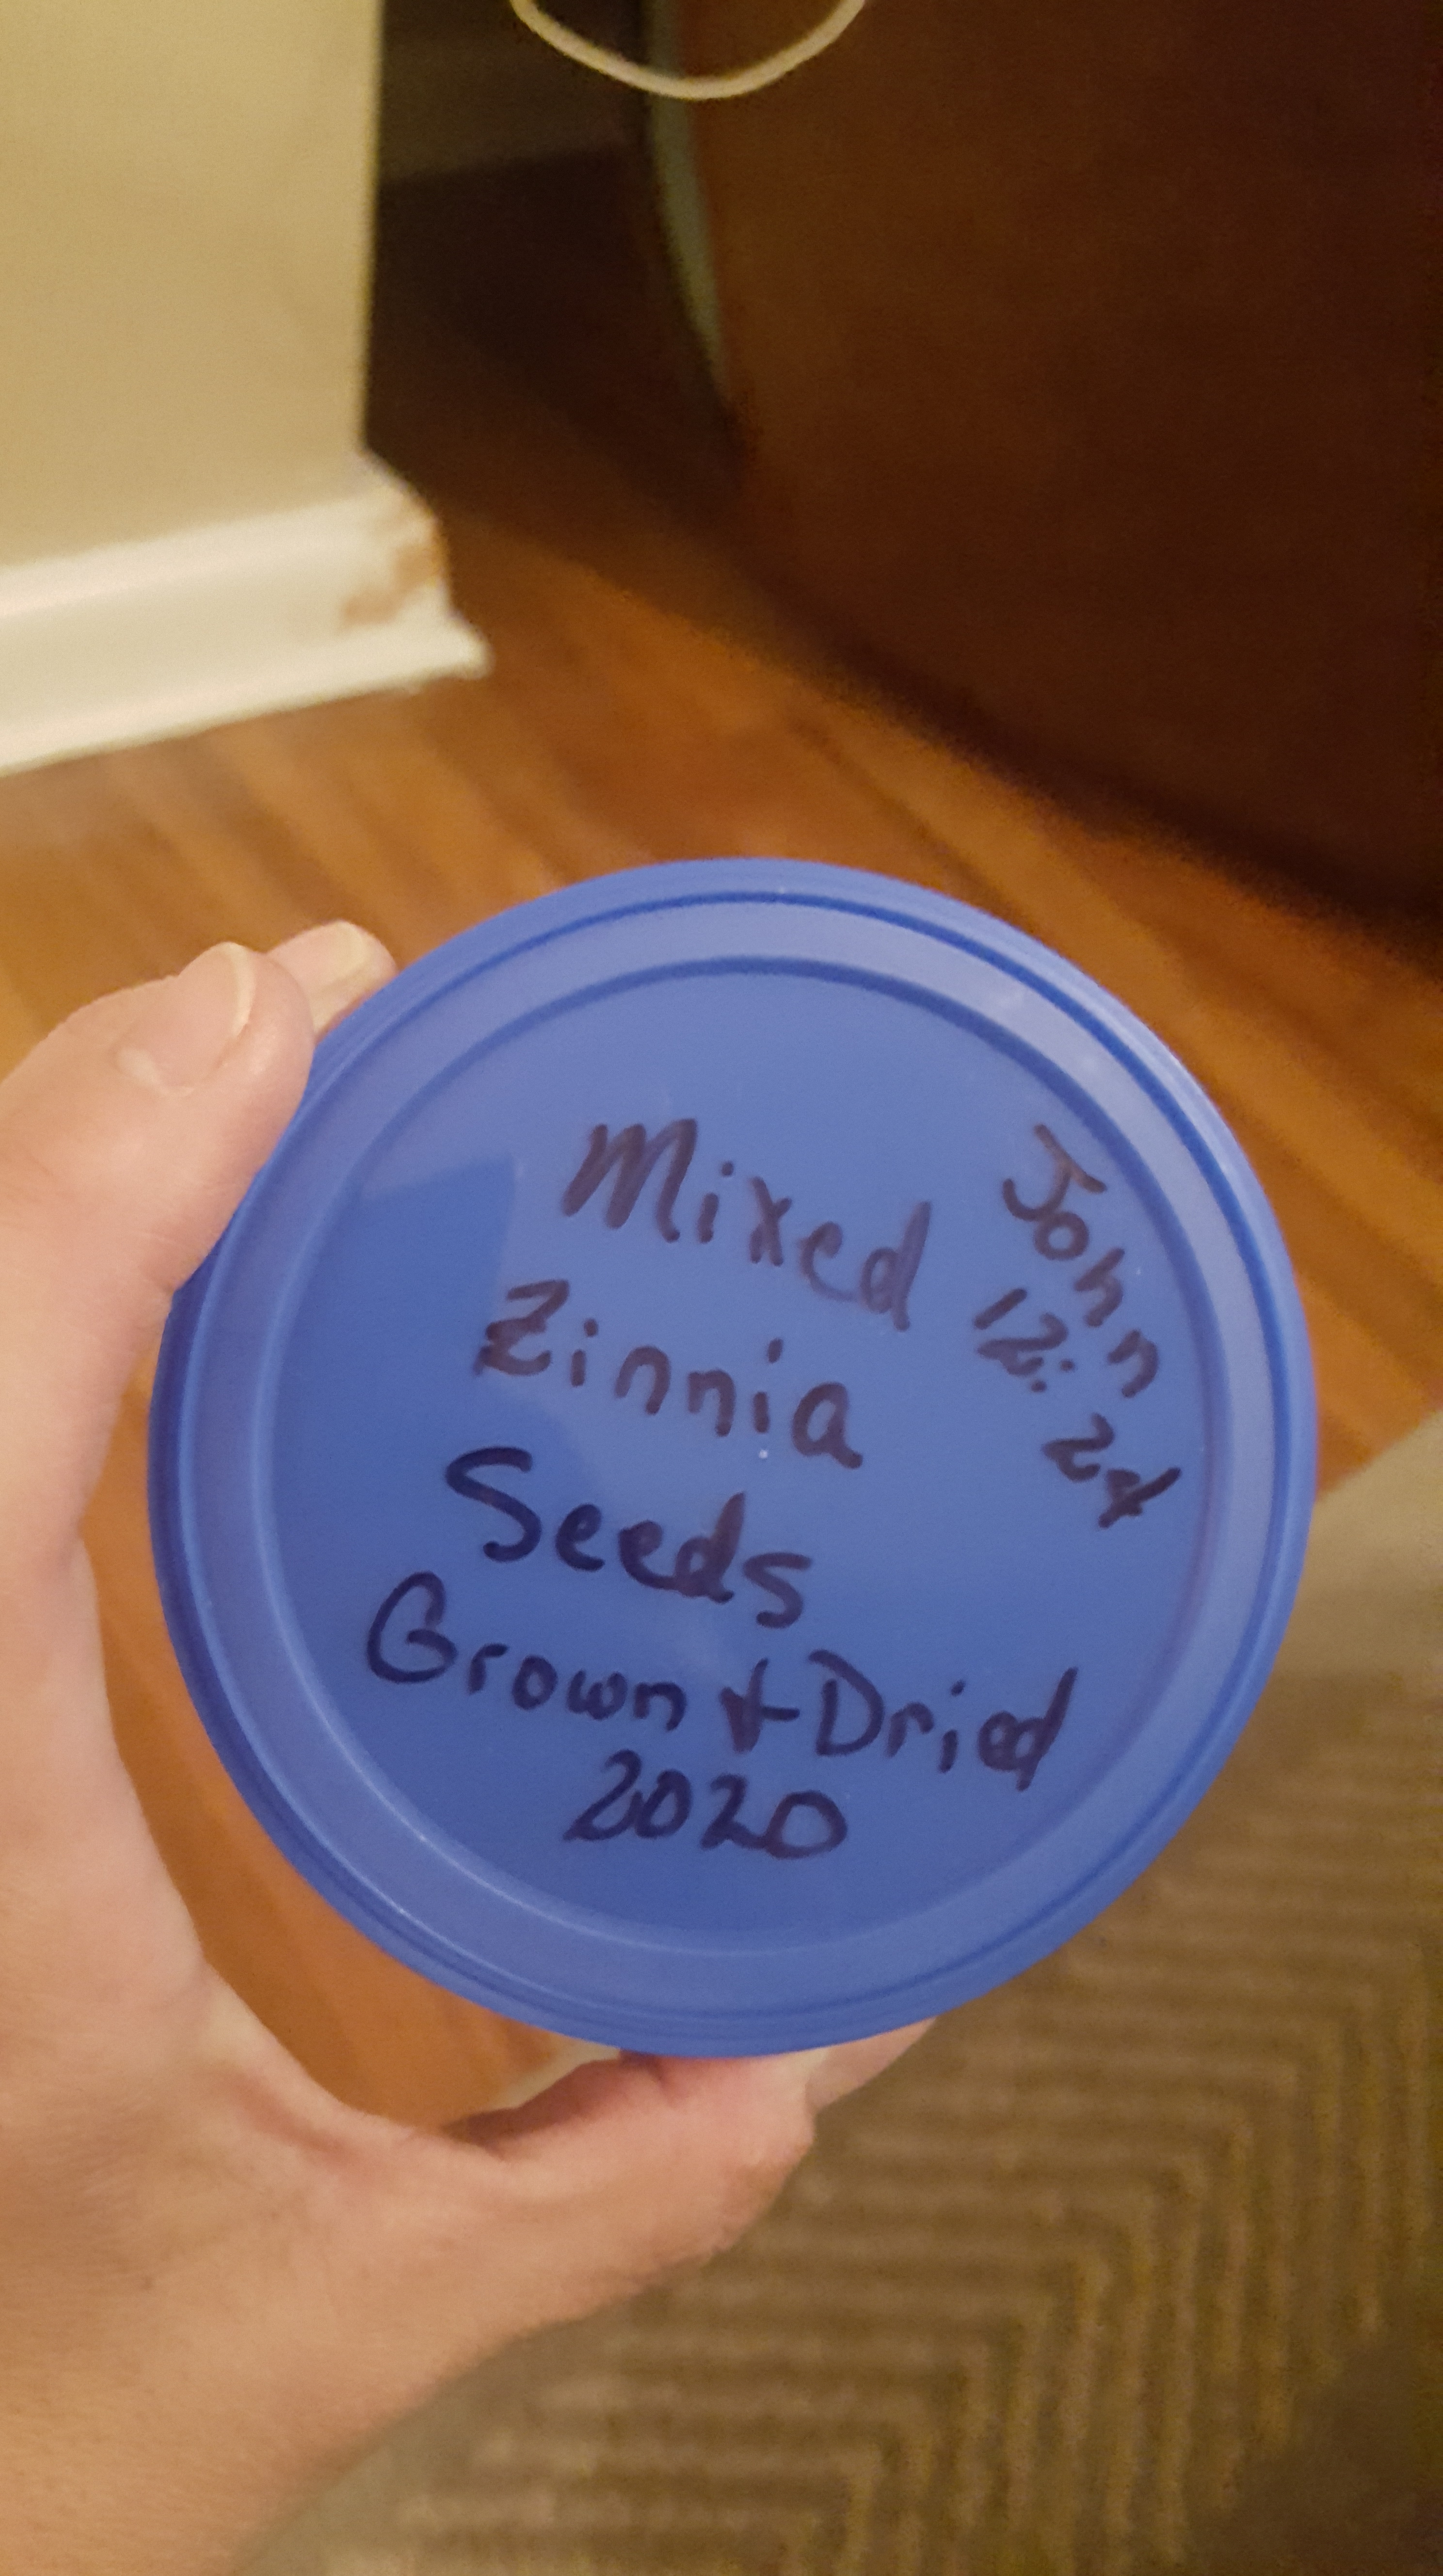 Mixed
Zinnia
Seeds
Grown + Dried
2020
John
12:24